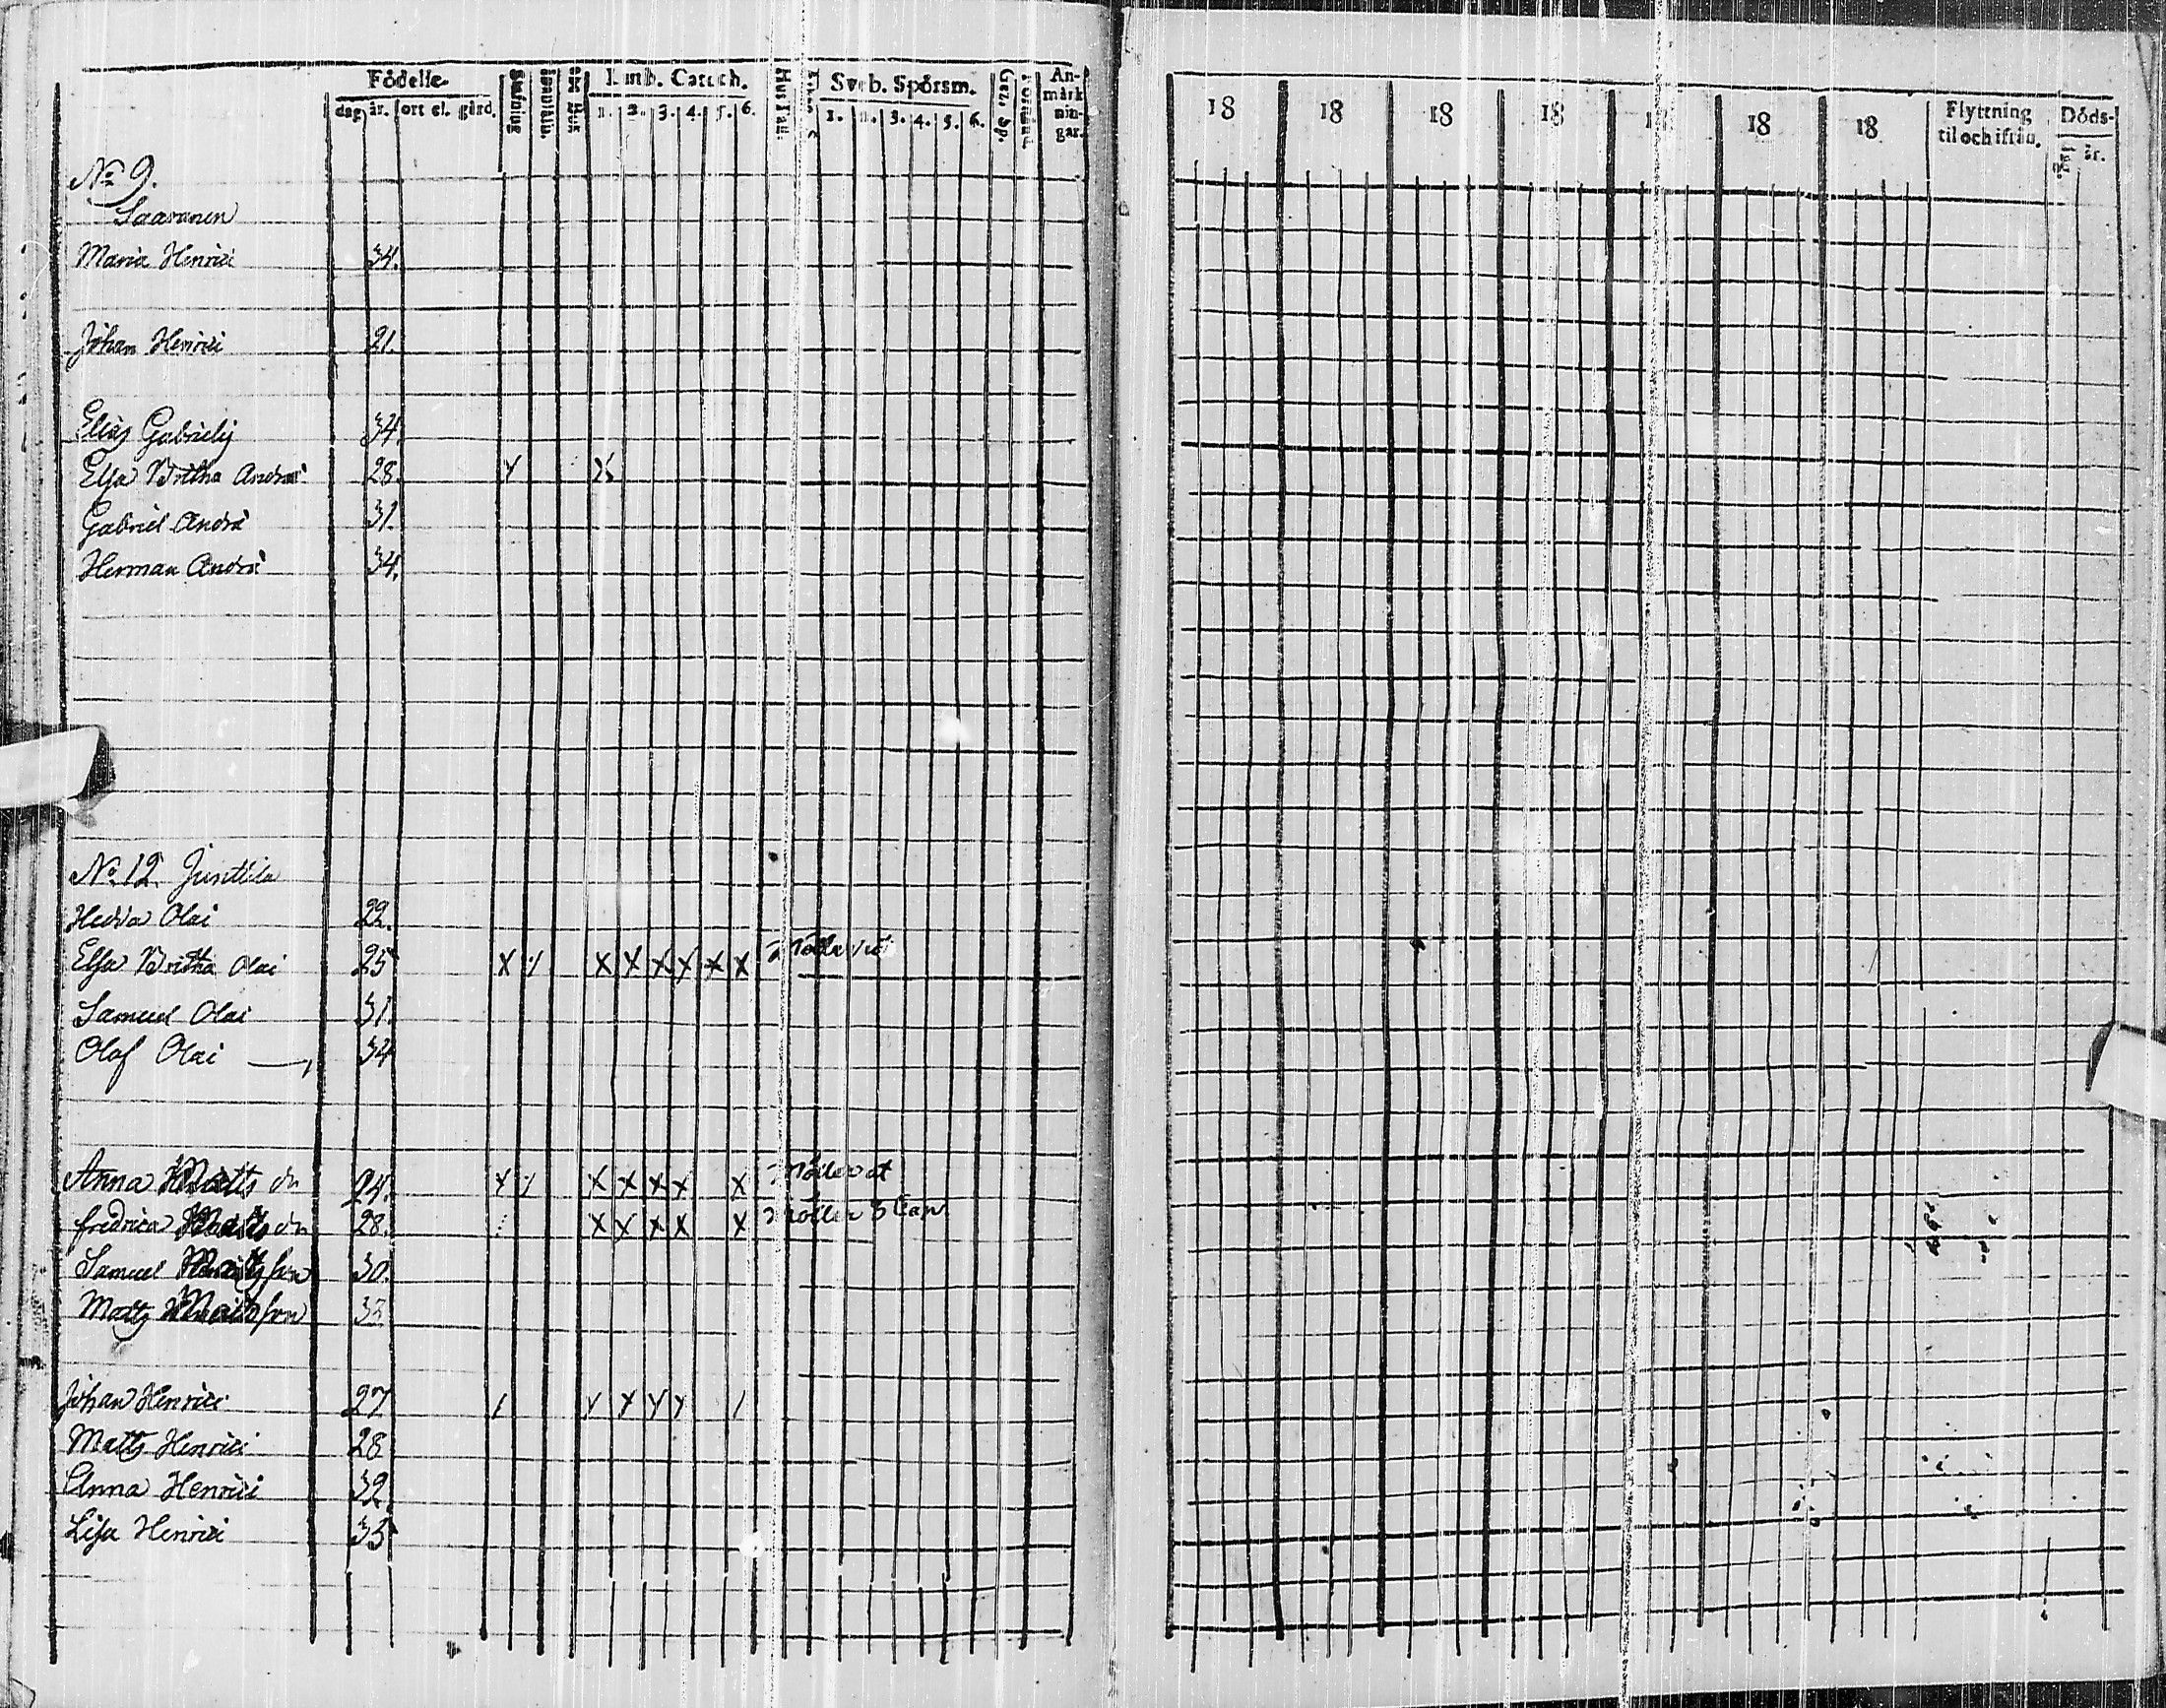 Födelse-
dag år. ort el. gård.
Lutb. Catech.
1. 2. 3. 4. 5. 6.
Sveb. Spörsm.
1. 2. 3. 4. 5. 6.
An-
märk
nin-
gar.
No 9.
Saaranen
Maria Henrici 34.
Johan Henrici 21.
Elias Gabrielis 34.
Elsa Britha Andræ 28. X X
Gabriel Andræ 31.
Herman Andræ 34.
No 12. Junttila
Hedda Olai 22.
Elsa Britha Olai 25 X X X X X X X X
Samuel Olai 31.
Olof Olai 34
Anna Matts dr 24. X X X X X X X
Fredrica Matts dr 28. X X X X X
Samuel Matts son 30.
Matts Matts son 33
Johan Henrici 27 / X X X X /
Matts Henrici 28
Anna Henrici 32.
Lisa Henrici 35
18 18 18 18 18 18 18
Flyttning
til och ifrån.
Döds-
dag. år.